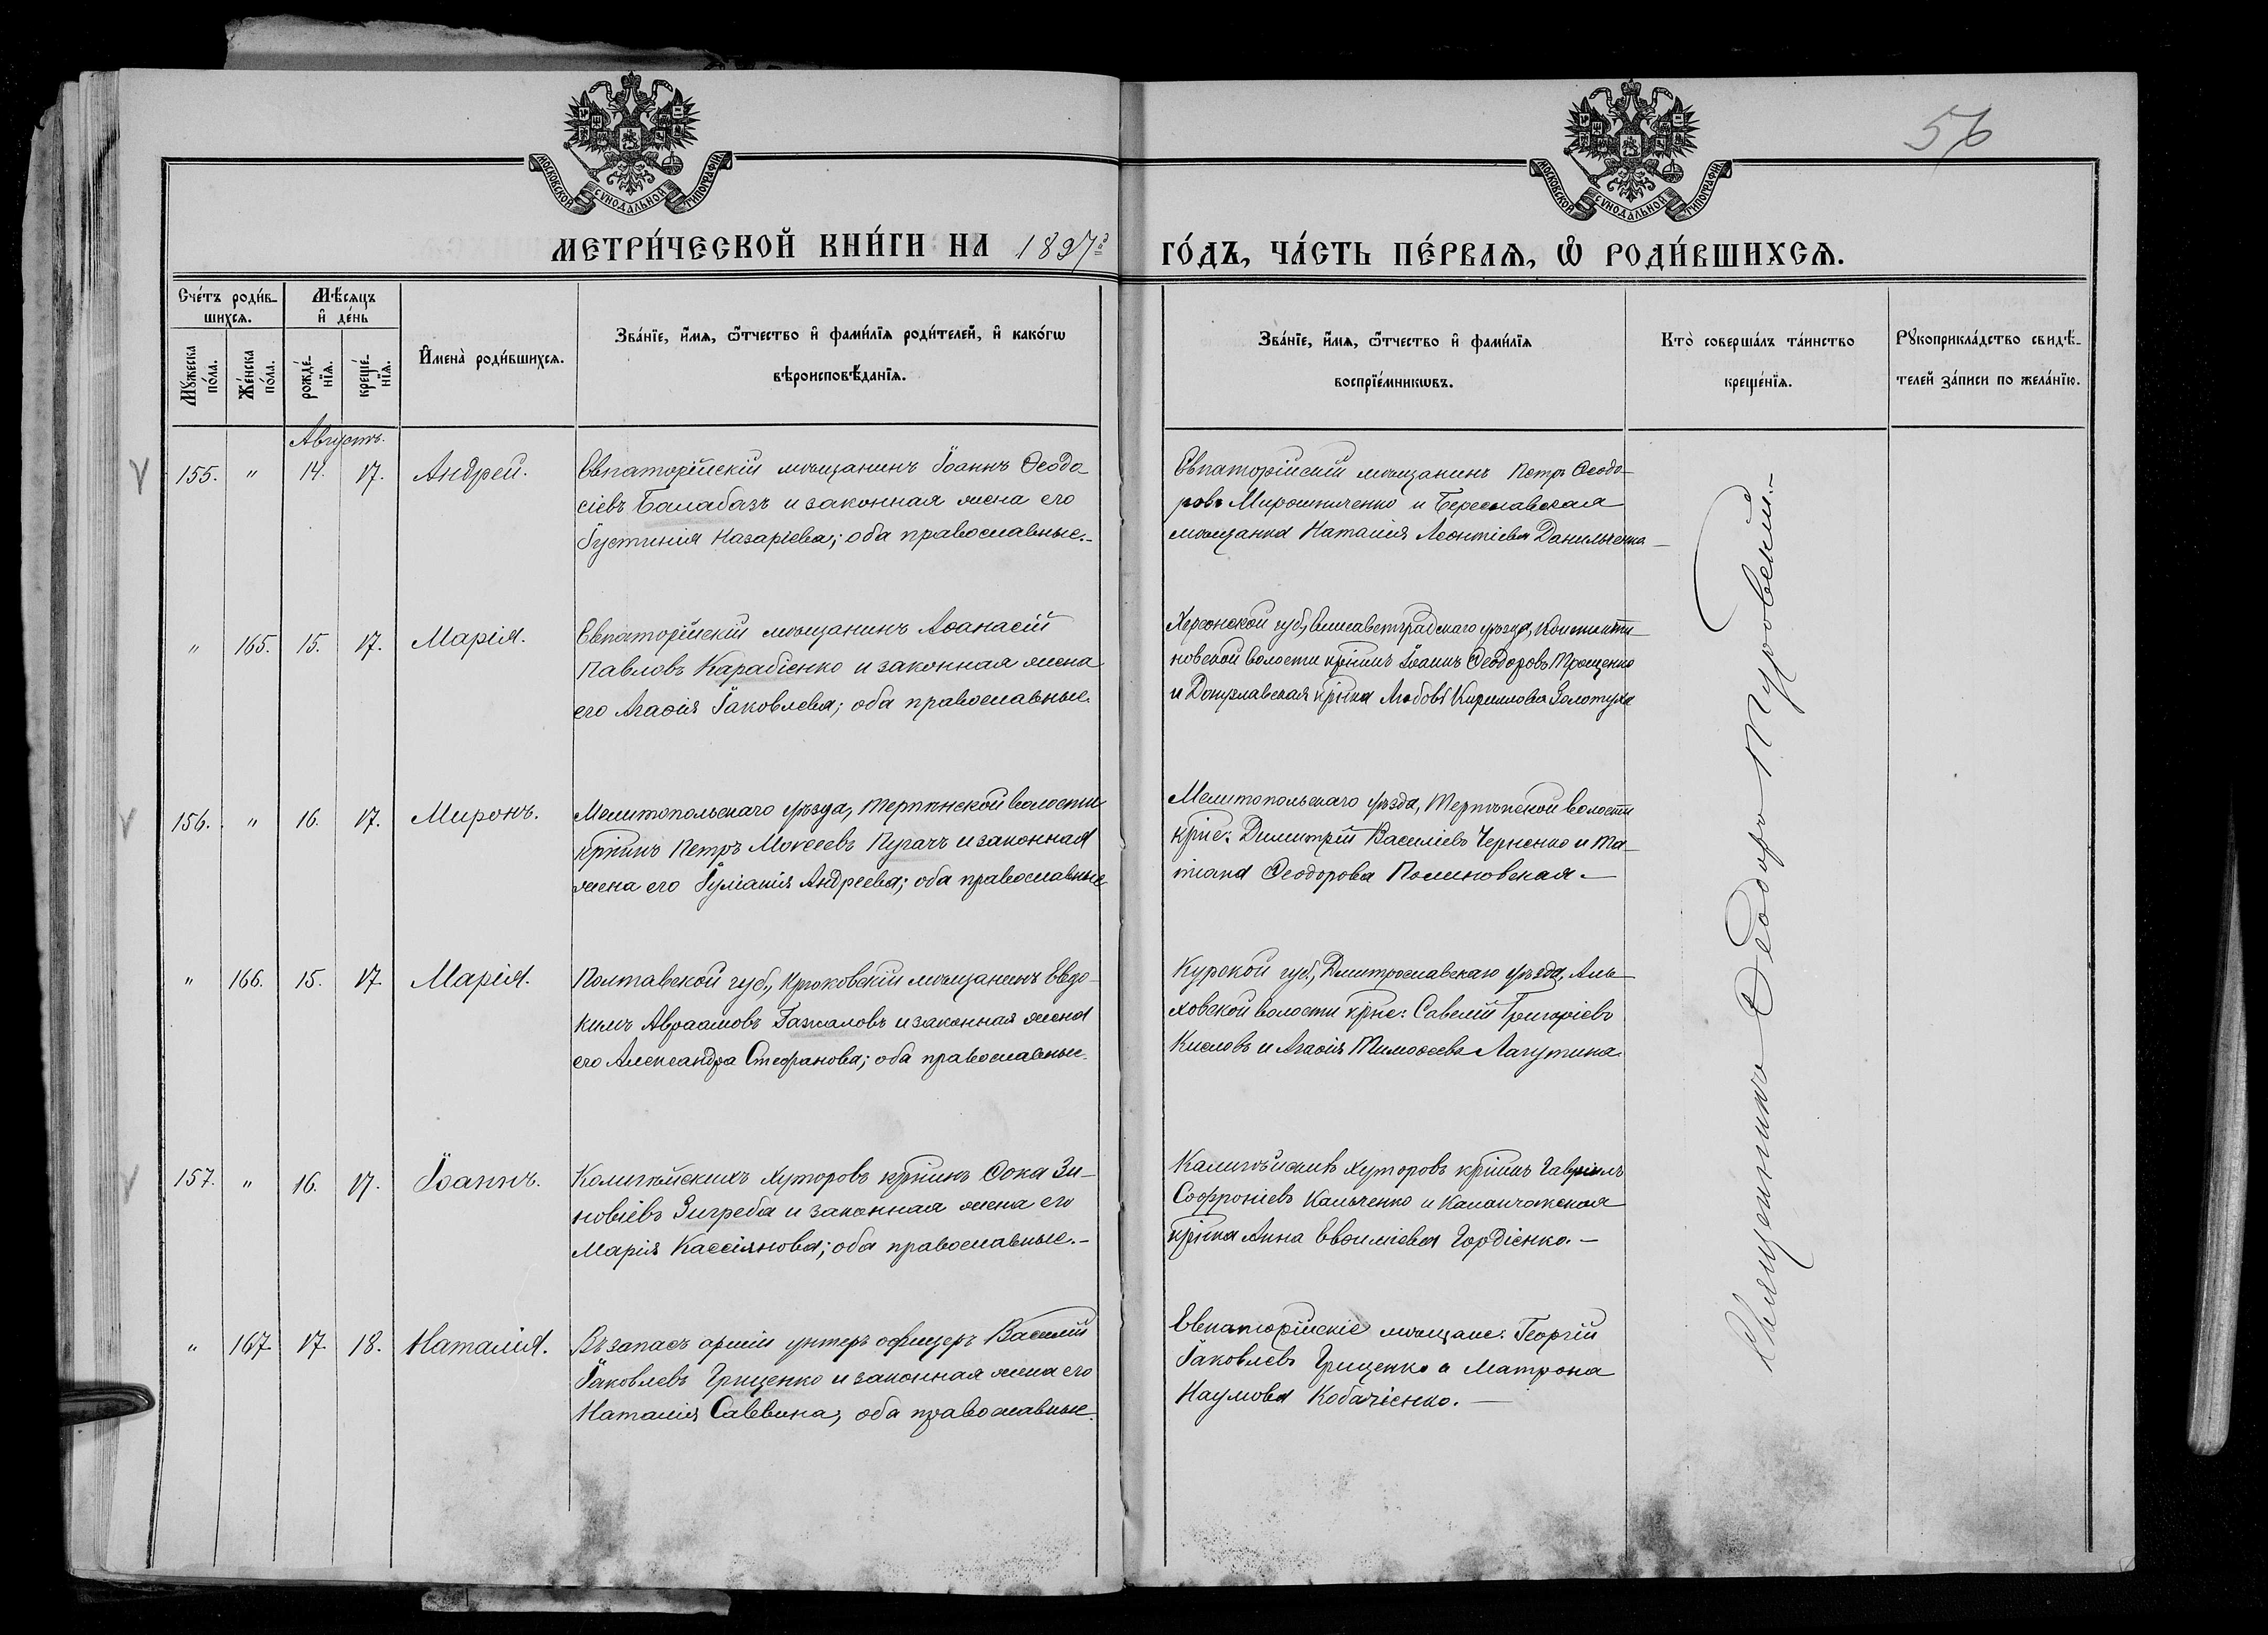 МОСКОВСКОЙ СѴНОДАЛЬНОЙ ТИПОГРАФІИ
МОСКОВСКОЙ СѴНОДАЛЬНОЙ ТИПОГРАФІИ
56
МЕТРИ́ЧЕСКОЙ КНИ́ГИ НА 1897 ГО́ДЪ, ЧА́СТЬ ПЕ́РВАѦ, Ѡ РОДИ́ВШИХСѦ.
Сче́тъ роди́в-
шихсѧ.
Мꙋжеска по́ла.
Же́нска по́ла.
Мѣ́сѧцъ
и҆ де́нь
рожде́-
нїѧ.
креще́-
нїѧ.
И҆мена̀ роди́вшихсѧ.
Зва́нїе, и҆́мѧ, ѻ҆́тчество и҆ фами́лїѧ роди́телей, и҆ како́гѡ
вѣроисповѣ́данїѧ.
Зва́нїе, и҆́мѧ, ѻ҆́тчество и҆ фами́лїѧ
воспрїе́мникѡвъ.
Кто̀ соверша́лъ та́инство
креще́нїѧ.
Рꙋкоприкла́дство свидѣ́-
телей за́писи по жела́нїю.
Августъ.
155. " 14. 17. Андрей.
Евпаторійскій мѣщанинъ Іоаннъ Ѳеодо
сіевъ Балабазъ и законная жена его
Іустинія Назаріева; оба православные.-
Евпаторійскій мѣщанинъ Петръ Ѳеодо-
ровъ Мирошниченко и Береславская
мѣщанка Наталія Леонтіева Данильченко
" 165. 15. 17. Марія.
Евпаторійскій мѣщанинъ Аѳанасій
Павловъ Карабіенко и законная жена
его Агаѳія Іаковлева; оба православные.
Херсонской губ., Елисаветградскаго уѣзда, Константи-
новской волости крнинъ Іоаннъ Ѳеодоровъ Трощенко
и Донузлавская крнка Любовь Кириллова Золотуха
156. " 16. 17. Миронъ.
Мелитопольскаго уѣзда, Терпѣнской волости
крнинъ Петръ Моѵсеевъ Пугачъ и законная
жена его Іуліанія Андреева; оба православные
Мелитопольскаго уѣзда, Терпѣнской волости
крне: Димитрій Василіевъ Черненко и Та-
тіана Ѳеодорова Полиновская.-
" 166. 15. 17. Марія.
Полтавской губ., Крюковскій мѣщанинъ Евдо-
кимъ Авраамовъ Гажаловъ и законная жена
его Александра Стефанова; оба православные.
Курской губ., Дмитрославскаго уѣзда, Аль-
ховской волости крне: Савелій Григоріевъ
Кисловъ и Агаѳія Тимоѳеева Лагутина.
157. " 16. 17. Іоаннъ.
Хуторовъ крнинъ Ѳока Зи-
новіевъ Зигреба и законная жена его
Марія Кассіянова; оба православные.-
хуторовъ крнинъ Гавріилъ
Софроніевъ Кальченко и Каланчакская
крнка Анна Евѳиміева Гордіенко.-
" 167. 17. 18. Наталія.
Въ запасѣ арміи унтеръ офицеръ Василій
Іаковлевъ Грищенко и законная жена его
Наталія Саввина; оба православные.
Евпаторійскіе мѣщане: Георгій
Іаковлевъ Грищенко и Матрона
Наумова Кобаченко.-
Священникъ Ѳеодоръ Туровскій.-